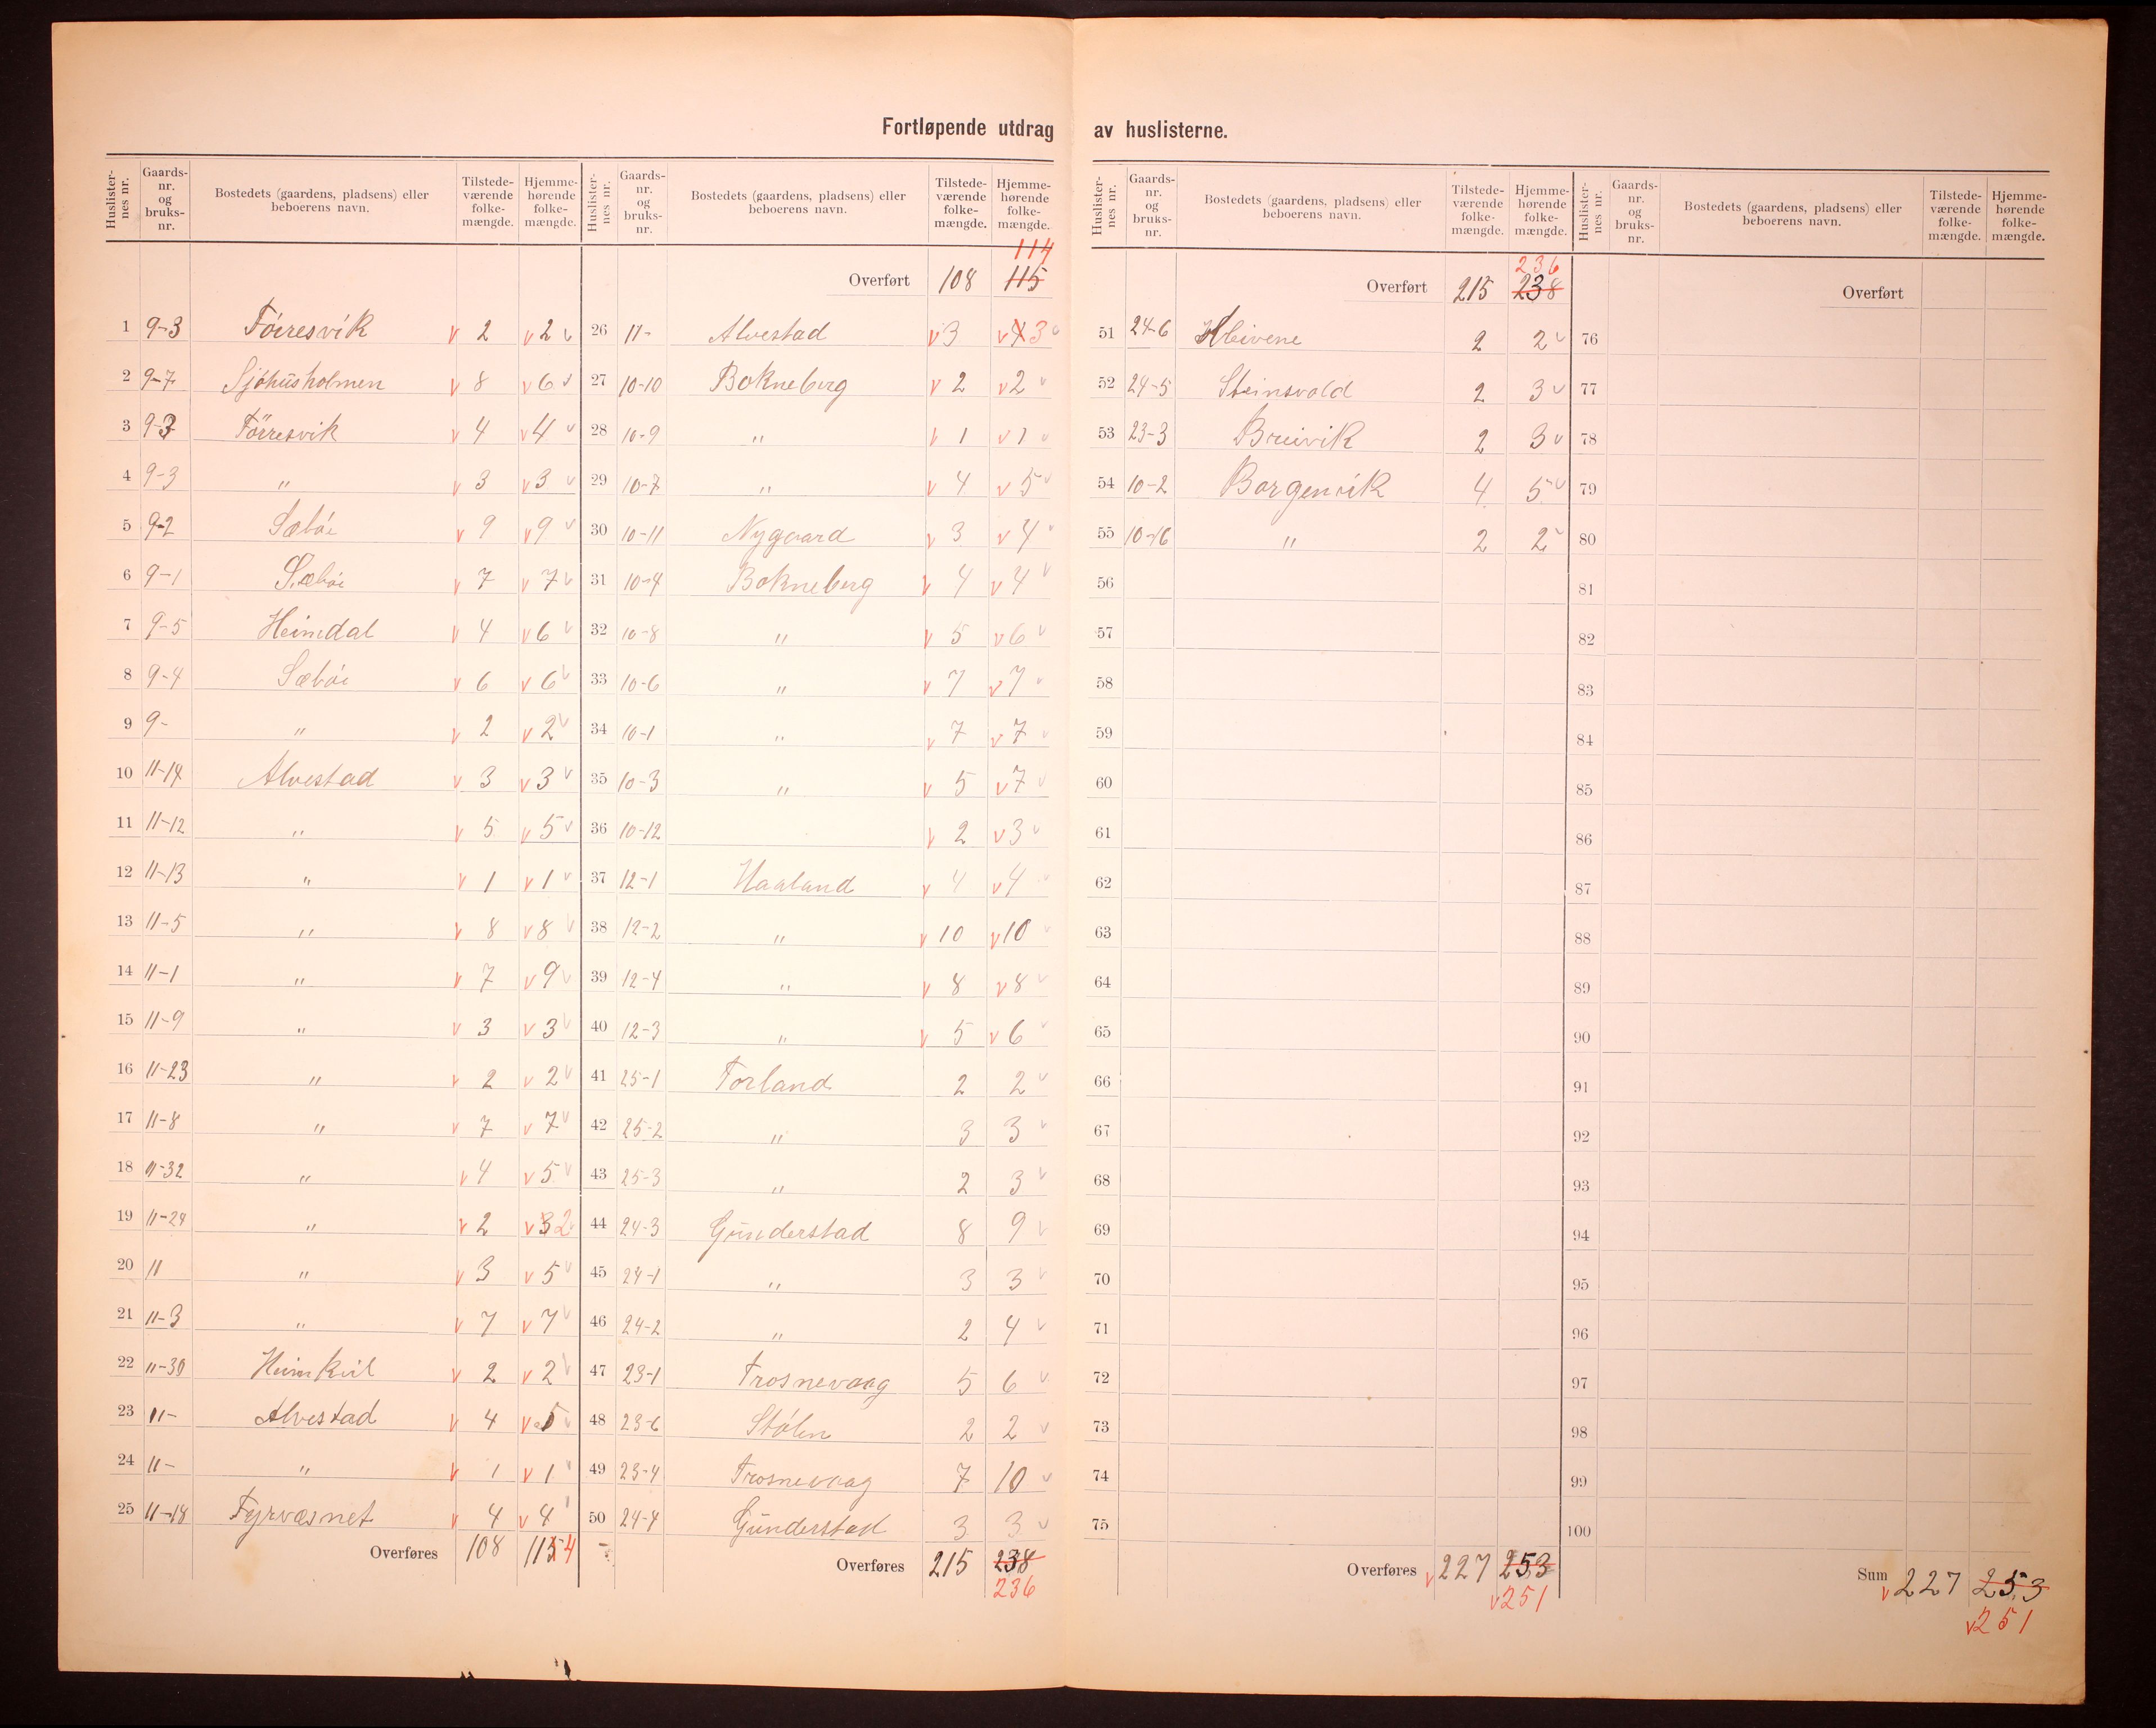 Fortløpende utdrag av huslisterne.
Huslister-nes nr. Gaards-nr. og bruks-nr. Bostedets (gaardens, pladsens) eller beboerens navn. Tilstede-værende folke-mængde. Hjemme-hørende folke-mængde.
1 9-3 Føresvik 2 2
2 9-7 Sjøhusholmen 8 6
3 9-3 Førresvik 4 4
4 9-3 " 3 3
5 9-2 Sæbøe 9 9
6 9-1 Sæbøe 7 7
7 9-5 Heimdal 4 6
8 9-4 Sæbøe 6 6
9 9- " 2 2
10 11-14 Alvestad 3 3
11 11-12 " 5 5
12 11-13 " 1 1
13 11-5 " 8 8
14 11-1 " 7 9
15 11-9 " 3 3
16 11-23 " 2 2
17 11-8 " 7 7
18 11-32 " 4 5
19 11-24 " 2 3 2
20 11 " 3 5
21 11-3 " 7 7
22 11-30 Heimkvil 2 2
23 11- Alvestad 4 5
24 11- " 1 1
25 11-18 Fyrvæsnet 4 4
Overføres 108 115 4
Huslister-nes nr. Gaards-nr. og bruks-nr. Bostedets (gaardens, pladsens) eller beboerens navn. Tilstede-værende folke-mængde. Hjemme-hørende folke-mængde.
114
Overført 108 115
26 11- Alvestad 3 4 3
27 10-10 Bokneberg 2 2
28 10-9 " 1 1
29 10-7 " 4 5
30 10-11 Nygaard 3 4
31 10-4 Bokneberg 4 4
32 10-8 " 5 6
33 10-6 " 7 7
34 10-1 " 7 7
35 10-3 " 5 7
36 10-12 2 3
37 12-1 Haaland 4 4
38 12-2 " 10 10
39 12-4 " 8 8
40 12-3 " 5 6
41 25-1 Torland 2 2
42 25-2 " 3 3
43 25-3 " 2 3
44 24-3 Gunderstad 8 9
45 24-1 " 3 3
46 24-2 " 2 4
47 23-1 Trosnevaag 5 6
48 23-6 Stølen 2 2
49 23-4 Trosnevaag 7 10
50 24-4 Gunderstad 3 3
Overføres 215 238
236
Huslister-nes nr. Gaards-nr. og bruks-nr. Bostedets (gaardens, pladsens) eller beboerens navn. Tilstede-værende folke-mængde. Hjemme-hørende folke-mængde.
236
Overført 215 238
51 24-6 2 2
52 24-5 Steinsvold 2 3
53 23-3 Breivik 2 3
54 10-2 Borgenvik 4 5
55 10-16 " 2 2
56
57
58
59
60
61
62
63
64
65
66
67
68
69
70
71
72
73
74
75
Overføres 227 253
251
Huslister-nes nr. Gaards-nr. og bruks-nr. Bostedets (gaardens, pladsens) eller beboerens navn. Tilstede-værende folke-mængde. Hjemme-hørende folke-mængde.
Overført
76
77
78
79
80
81
82
83
84
85
86
87
88
89
90
91
92
93
94
95
96
97
98
99
100
Sum 227 253
251